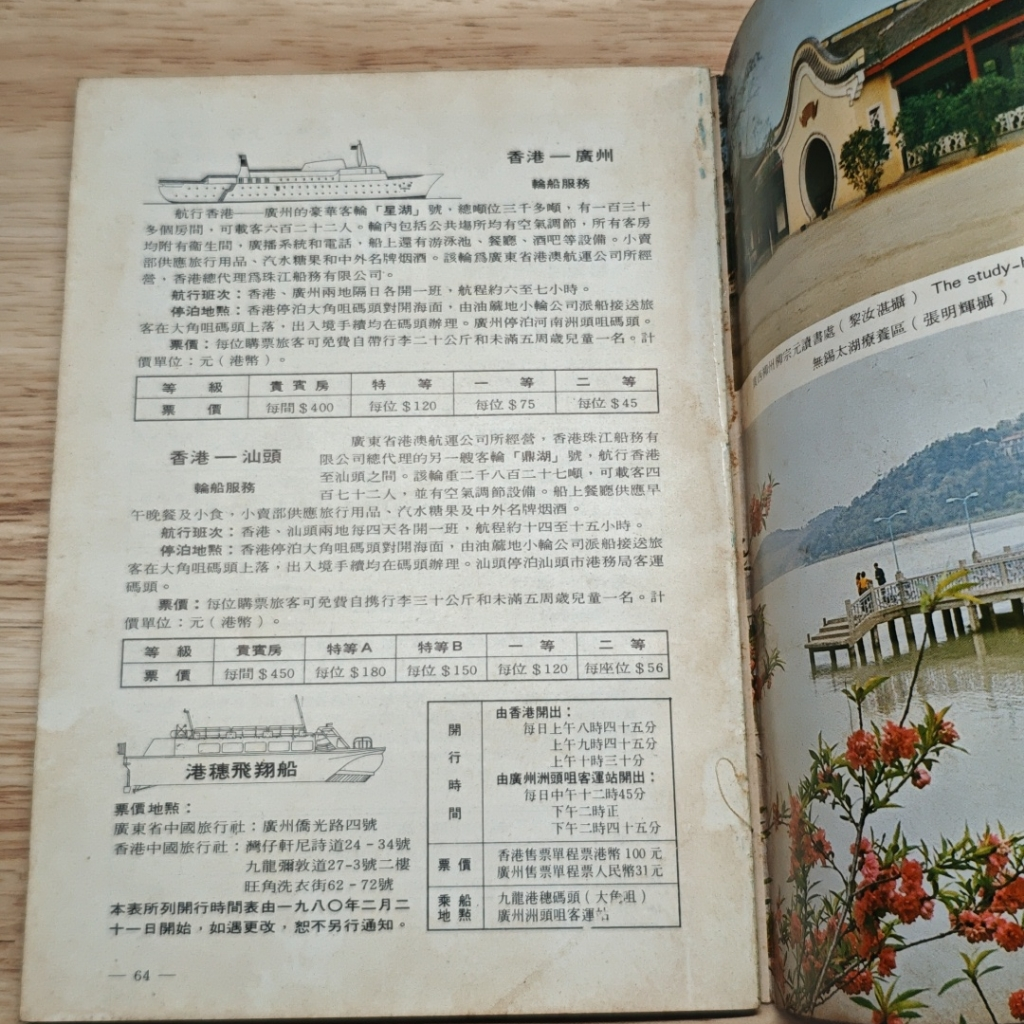 香港—廣州
輪船服務
航行香港——廣州的豪華客輪「星湖」號，總噸位三千多噸，有一百三十
多個房間，可載客六百二十二人。輪內包括公共場所均有空氣調節，所有客房
均附有衞生間，廣播系統和電話，船上還有游泳池、餐廳、酒吧等設備。小賣
部供應旅行用品、汽水糖果和中外名牌烟酒。該輪爲廣東省港澳航運公司所經
營，香港總代理爲珠江船務有限公司。
航行班次：香港、廣州兩地隔日各開一班，航程約六至七小時。
停泊地點：香港停泊大角咀碼頭對開海面，由油蔴地小輪公司派船接送旅
客在大角咀碼頭上落，出入境手續均在碼頭辦理。廣州停泊河南洲頭咀碼頭。
票價：每位購票旅客可免費自帶行李二十公斤和未滿五周歲兒童一名。計
價單位：元（港幣）。
等 級 貴賓房 特 等 一 等 二 等
票 價 每間＄400 每位＄120 每位＄75 每位＄45
香港—汕頭
輪船服務
廣東省港澳航運公司所經營，香港珠江船務有
限公司總代理的另一艘客輪「鼎湖」號，航行香港
至汕頭之間。該輪重二千八百二十七噸，可載客四
百七十二人，並有空氣調節設備。船上餐廳供應早
午晚餐及小食，小賣部供應旅行用品、汽水糖果及中外名牌烟酒。
航行班次：香港、汕頭兩地每四天各開一班，航程約十四至十五小時。
停泊地點：香港停泊大角咀碼頭對開海面，由油蔴地小輪公司派船接送旅
客在大角咀碼頭上落，出入境手續均在碼頭辦理。汕頭停泊汕頭市港務局客運
碼頭。
票價：每位購票旅客可免費自携行李三十公斤和未滿五周歲兒童一名。計
價單位：元（港幣）。
等 級 貴賓房 特等A 特等B 一 等 二 等
票 價 每間＄450 每位＄180 每位＄150 每位＄120 每座位＄56
港穗飛翔船
票價地點：
廣東省中國旅行社：廣州僑光路四號
香港中國旅行社：灣仔軒尼詩道24－34號
九龍彌敦道27-3號二樓
旺角洗衣街62－72號
本表所列開行時間表由一九八〇年二月二
十一日開始，如遇更改，恕不另行通知。
開行時間
由香港開出：
每日上午八時四十五分
上午九時四十五分
上午十時三十分
由廣州洲頭咀客運站開出：
每日中午十二時45分
下午二時正
下午二時四十五分
票價
香港售票單程票港幣 100 元
廣州售票單程票人民幣31元
乘船地點
九龍港穗碼頭（大角咀）
廣州洲頭咀客運站
— 64 —
柳州柳宗元讀書處（黎汝湛攝） The study-h
無錫太湖療養區（張明輝攝）